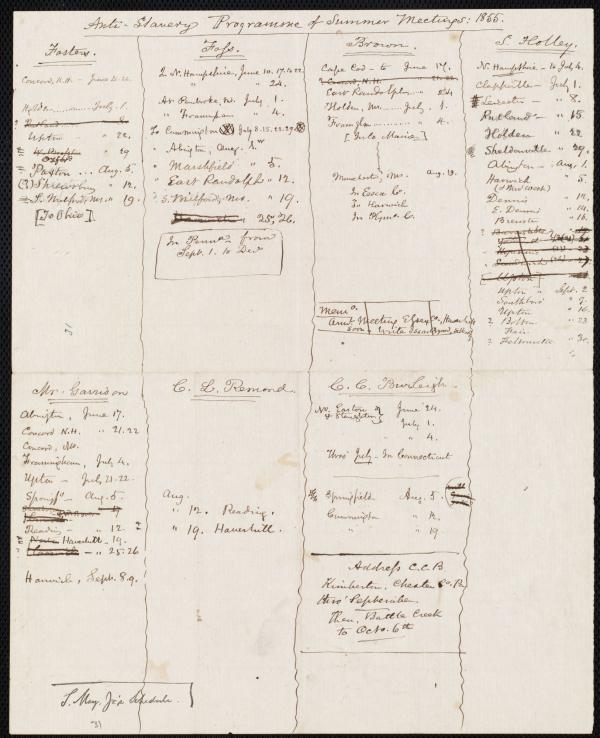 Anti-Slavery Programme of Summer Meetings: 1855.
Fosters.
Concord, N.H. - June 21-22.
Holden ...... July 1.
Upton " 22.
" 29
Oxford
Paxton ... Aug. 5.
(?) Shrewsbury " 12.
S. Milford, Ms. " 19.
[To Ohio].
Foss.
In N. Hampshire, June 10. 17. to 22.
" " 24.
At Pembroke, Ms. July 1.
" Framingham " 4.
To Cummington July 8. 15. 22. 29
Abington, Aug. 1.
Marshfield " 5.
East Randolph " 12.
S. Milford, Ms. " 19.
25. 26.
In Penna. from
Sept. 1. to Dec
Brown.
Cape Cod - to June 17.
Concord, N.H. 21-22
East Randolph " 24
Holden, Ms. July 1.
Framgham " 4.
[Into Maine]
Manchester, Ms. Aug. 19.
In Essex Co.
In Harwich
In Plym. Co.
Memo.
Meeting Essex Co., Haverhill
soon
S. Holley.
N. Hampshire - to July 4.
Clappville - July 1.
Leicester - " 8.
Rutland " 15
Holden " 22
Sheldonville " 29.
Abington - Aug. 1.
Harwich " 5.
Dennis " 12.
E. Dennis " 14.
Brewster " 16.
? Barnstable
[Upton]
Upton " Sept. 2
Southboro " 9.
Upton " 16
? Bolton " 23
? Feltonville " 30.
Mr. Garrison
Abington, June 17.
Concord N.H. " 21. 22
Concord, Ms.
Framingham, July 4.
Upton - July 21-22
Springfd - Aug. 5.
Reading - " 12.
Haverhill - 19.
" 25. 26
Harwich, Sept. 8. 9.
C. L. Remond.
Aug.
" 12. Reading.
" 19. Haverhill.
C. C. Burleigh.
No. Easton &
Stoughton} June 24.
July 1.
" 4.
Thro' July - In Connecticut
Springfield Aug. 5.
Cummington " 12.
" " 19
Address C.C.B.
Kimberton, Chester Co. Pa
thro' September.
Then, Battle Creek
to Octo. 6th
S. May, Jr's Schedule.